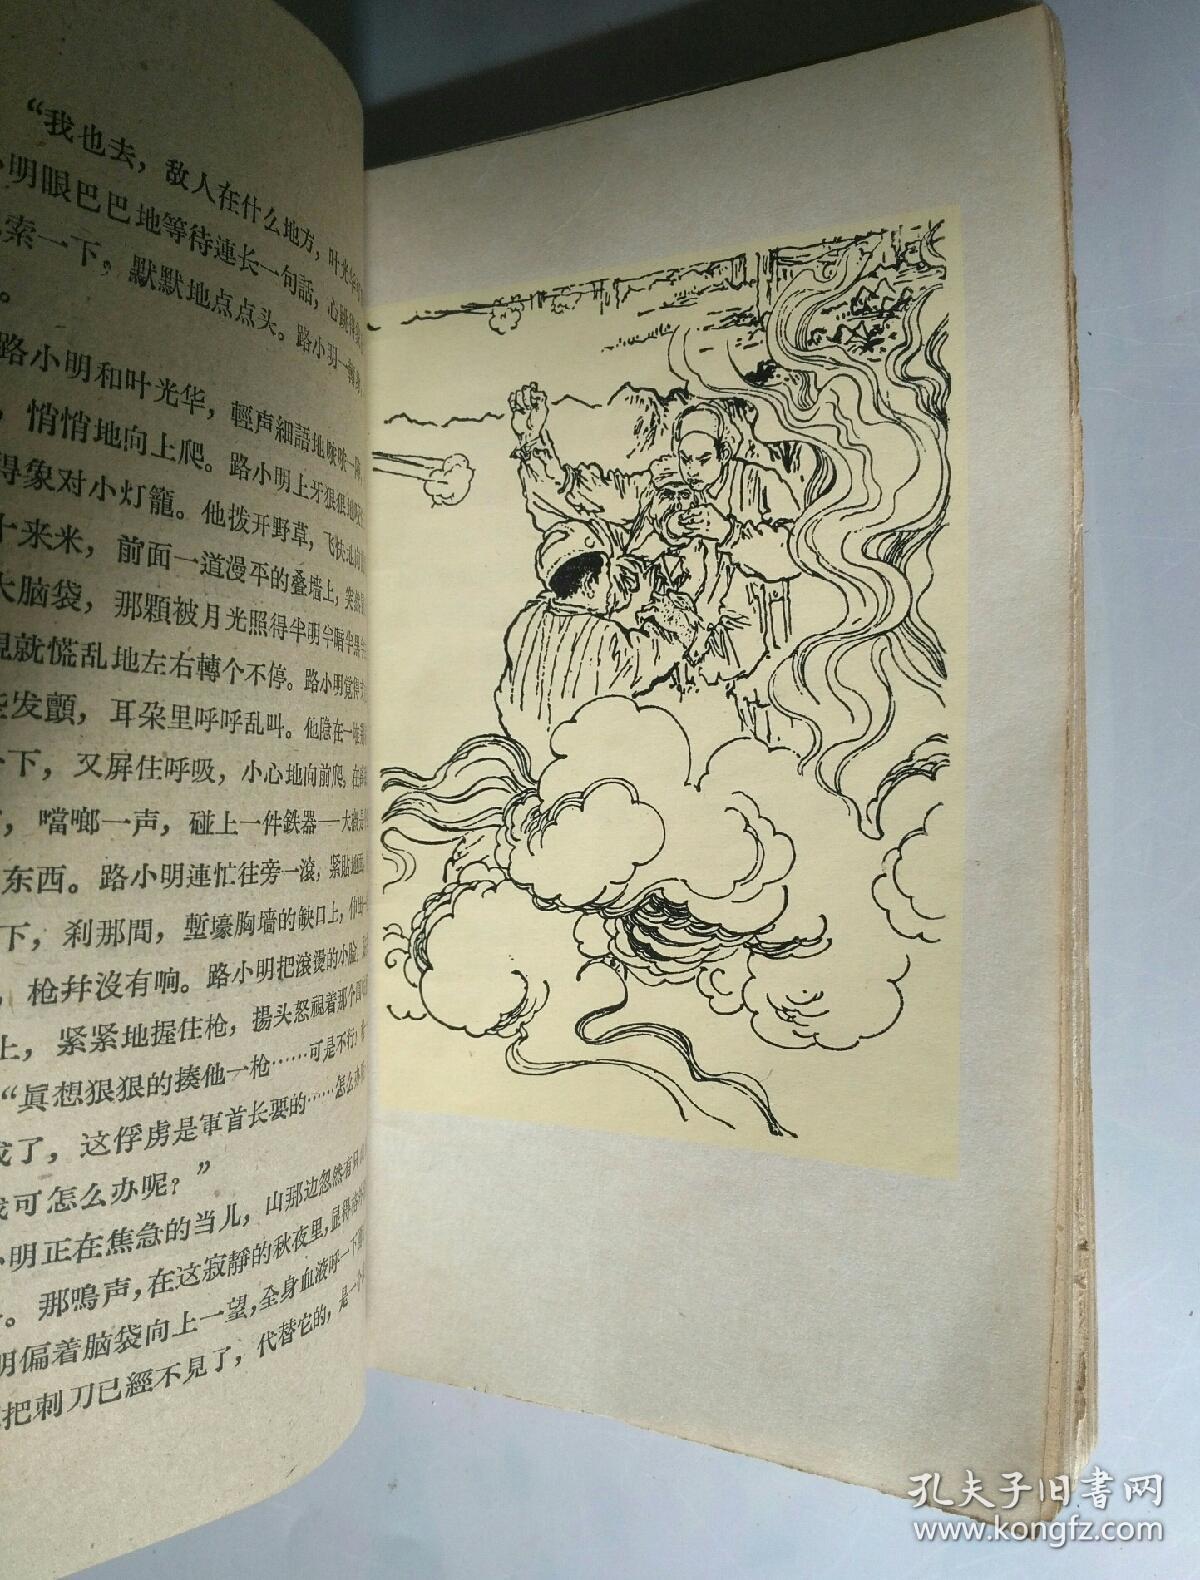 “我也去，敌人在什么地方，叶光华
明眼巴巴地等待連长一句話，心跳
索一下，默默地点点头。路小明一
。
路小明和叶光华，輕声細語地
，悄悄地向上爬。路小明上牙狠狠地
得象对小灯籠。他拨开野草，飞快地向
十来米，前面一道漫平的叠墙上，突然
大脑袋，那顆被月光照得半明半暗
就慌乱地左右轉个不停。路小明覚得
发顫，耳朶里呼呼乱叫。他隐在一
下，又屏住呼吸，小心地向前爬，在
，噹啷一声，碰上一件鉄器—大
东西。路小明連忙往旁一滾，紧貼地
下，刹那間，塹壕胸墙的缺口上，
，枪幷沒有响。路小明把滾燙的小脸
上，紧紧地握住枪，揚头怒視着那个
“眞想狠狠的揍他一枪……可是不行！
了，这俘虏是軍首长要的……怎么办
我可怎么办呢？”
小明正在焦急的当儿，山那边忽然有
。那鳴声，在这寂靜的秋夜里，显得
明偏着脑袋向上一望，全身血液呼一下
把刺刀已經不見了，代替它的，是一个
孔夫子旧書网
www.kongfz.com